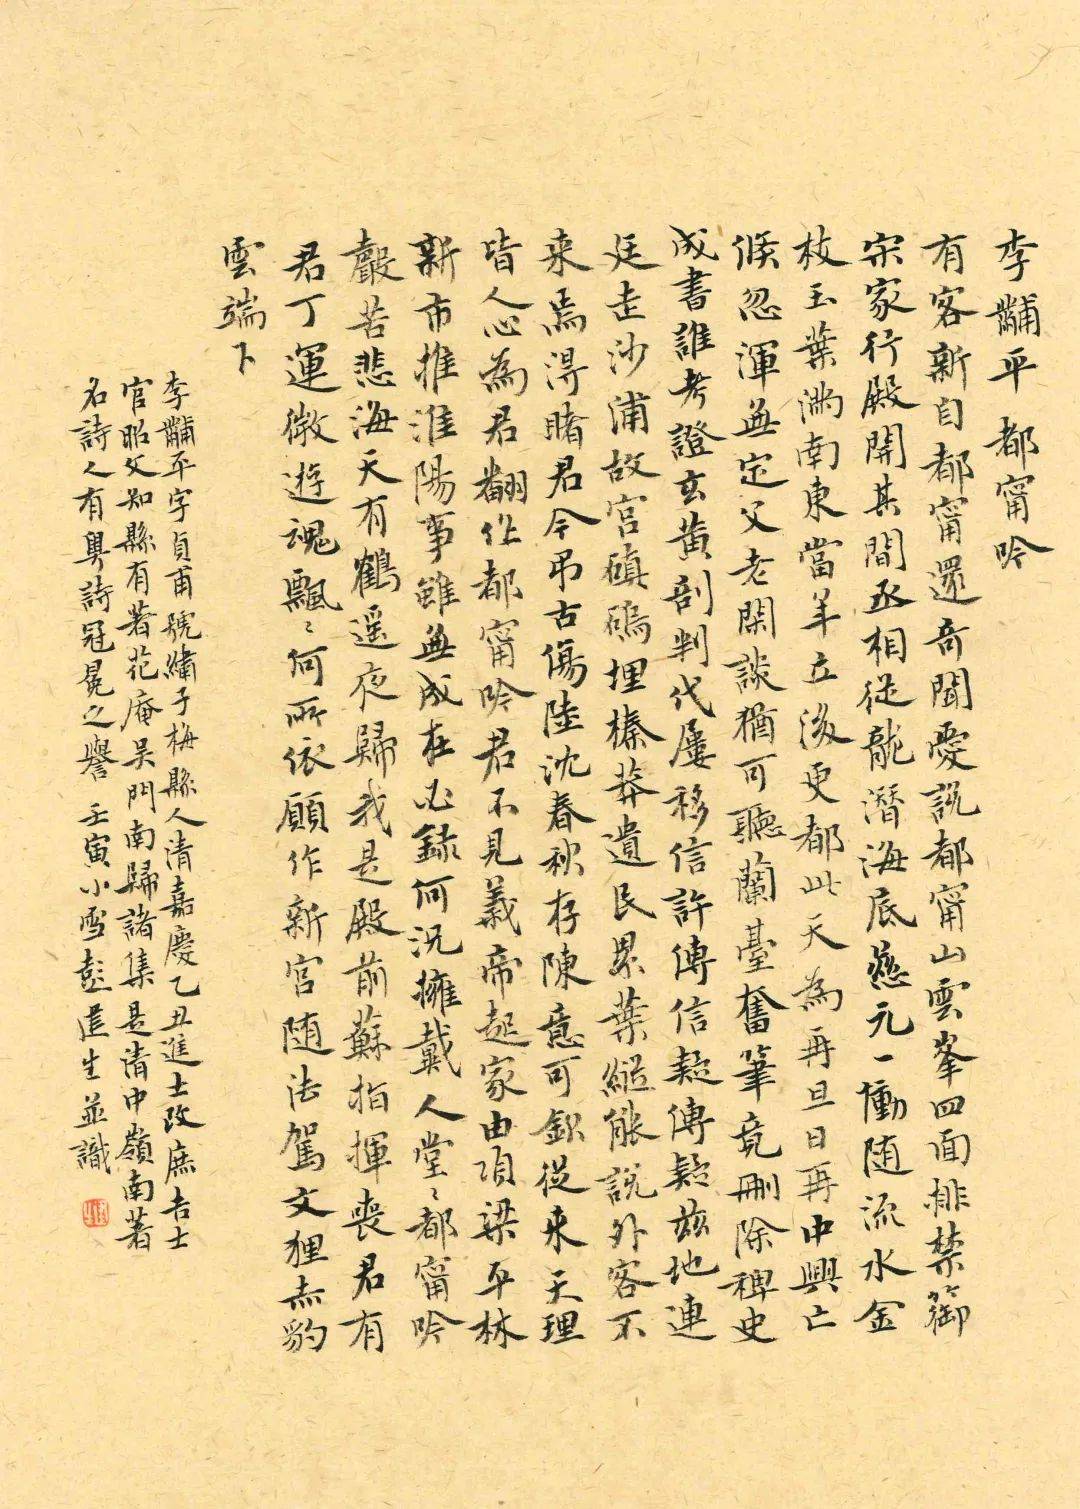 李黼平都甯吟
有客新自都甯還奇聞愛說都甯山雲峯四面排禁籞
宋家行殿開其間丞相從龍潛海底慈元一慟随流水金
枝玉葉滿南東當年立後更都此天為再旦日再中興亡
倏忽渾無定父老閑談猶可聽蘭臺奮筆竟刪除稗史
成書誰考證玄黃剖判代屢移信許傳信疑傳疑茲地連
廷走沙浦故宮磌碣埋榛莽遺民累葉縱能說外客不
来焉淂睹君今吊古傷陸沈春秋存陳意可欽從来天理
皆人心為君翻作都甯吟君不見義帝起家由項梁平林
新市推淮陽事雖無成在必録何況擁戴人堂〻都甯吟
聲苦悲海天有鶴遥夜歸我是殿前蘇指揮喪君有
君丁運微遊魂飄〻何所依願作新宮随法駕文狸赤豹
雲端下
李黼平字貞甫號繡子梅縣人清嘉慶乙丑進士改庶吉士
官昭文知縣有著花庵吴門南歸諸集是清中嶺南著
名詩人有粤詩冠冕之譽壬寅小雪彭匡生並識